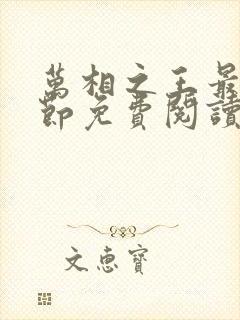 萬相之王最
節免費閱讀
文惠寶